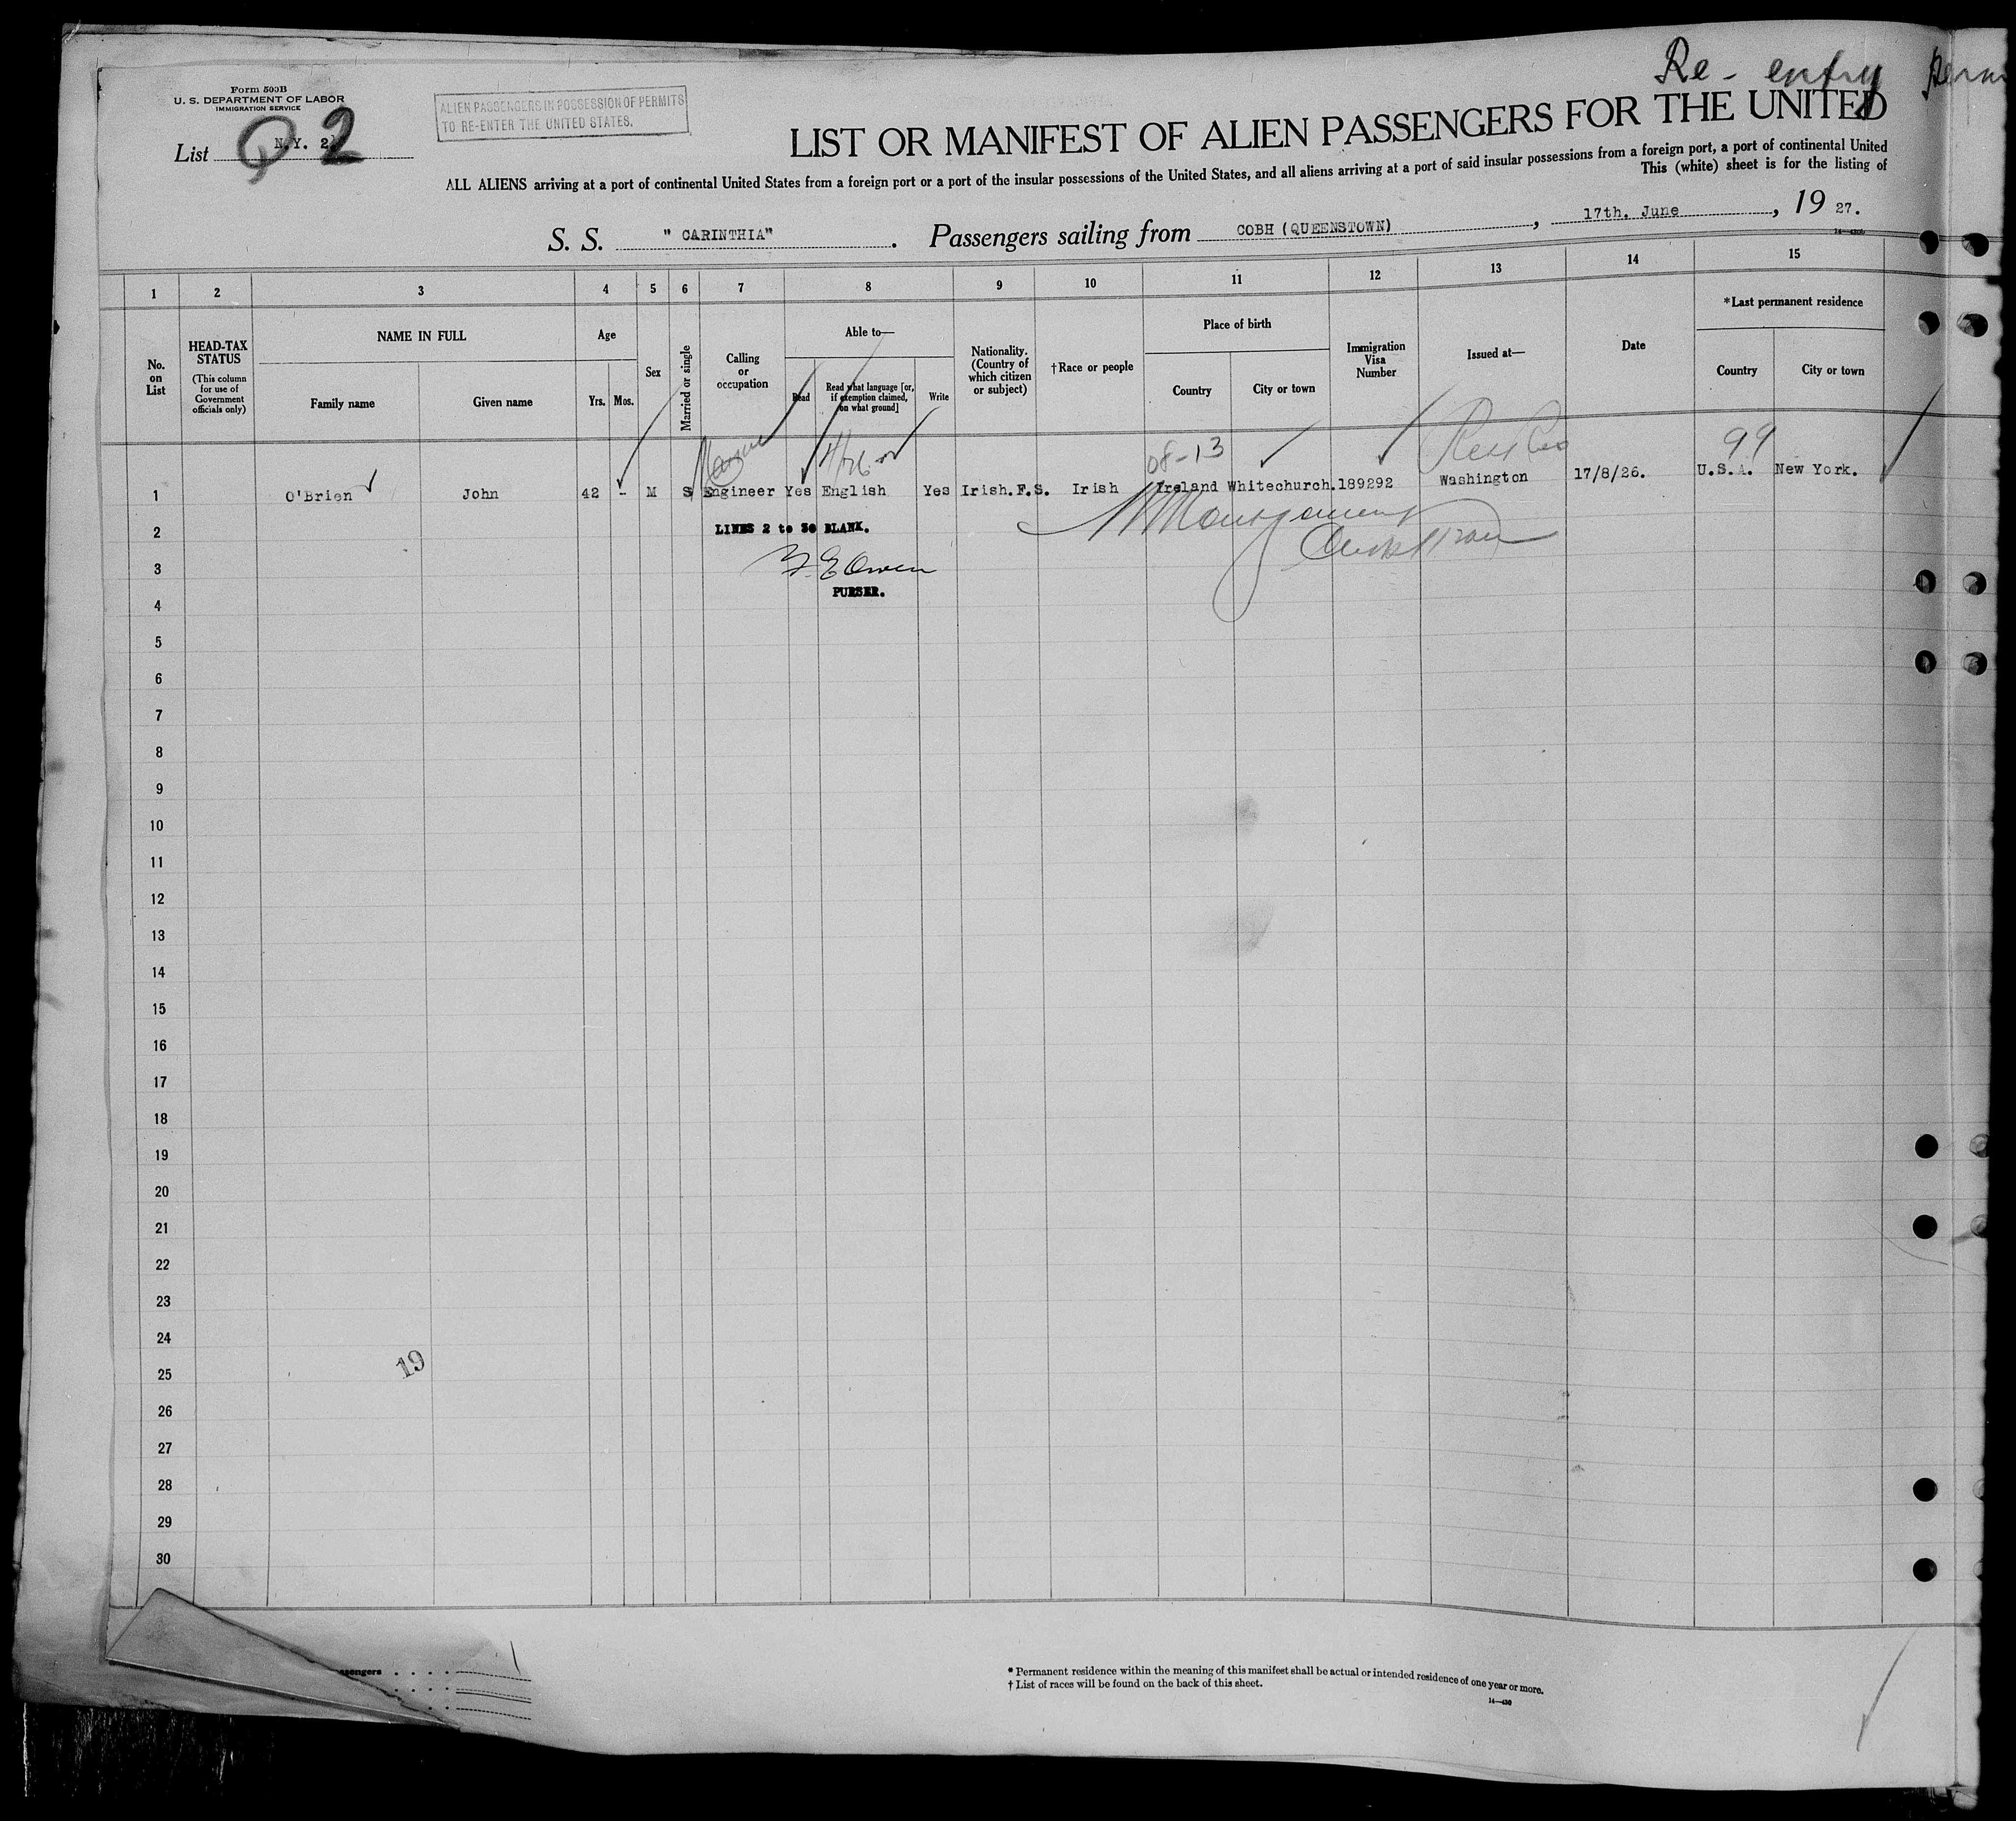 Re-entry
Form 500B
U. S. DEPARTMENT OF LABOR
IMMIGRATION SERVICE
ALIEN PASSENGERS IN POSSESSION OF PERMITS
TO RE-ENTER THE UNITED STATES.
List N.Y. 2
2
LIST OR MANIFEST OF ALIEN PASSENGERS FOR THE UNITED
ALL ALIENS arriving at a port of continental United States from a foreign port or a port of the insular possessions of the United States, and all aliens arriving at a port of said insular possessions from a foreign port, a port of continental United
This (white) sheet is for the listing of
S. S. " CARINTHIA" . Passengers sailing from COBH (QUEENSTOWN) , 17th. June , 19 27.
1 2 3 4 5 6 7 8 9 10 11 12 13 14 15
No. on List
HEAD-TAX STATUS
(This column for use of Government officials only)
NAME IN FULL
Family name Given name
Age
Yrs. Mos.
Sex
Married or single
Calling or occupation
Able to—
Read
Read what language [or, if exemption claimed, on what ground]
Write
Nationality. (Country of which citizen or subject)
†Race or people
Place of birth
Country City or town
Immigration Visa Number
Issued at—
Date
*Last permanent residence
Country City or town
08-13
99
1 O'Brien John 42 - M S Engineer Yes English Yes Irish.F.S. Irish Ireland Whitechurch. 189292 Washington 17/8/26. U.S.A. New York.
2 LINES 2 to 30 BLANK.
Montgomery
3
Owen
4 PURSER.
5
6
7
8
9
10
11
12
13
14
15
16
17
18
19
20
21
22
23
24
19
25
26
27
28
29
30
* Permanent residence within the meaning of this manifest shall be actual or intended residence of one year or more.
† List of races will be found on the back of this sheet.
14—430